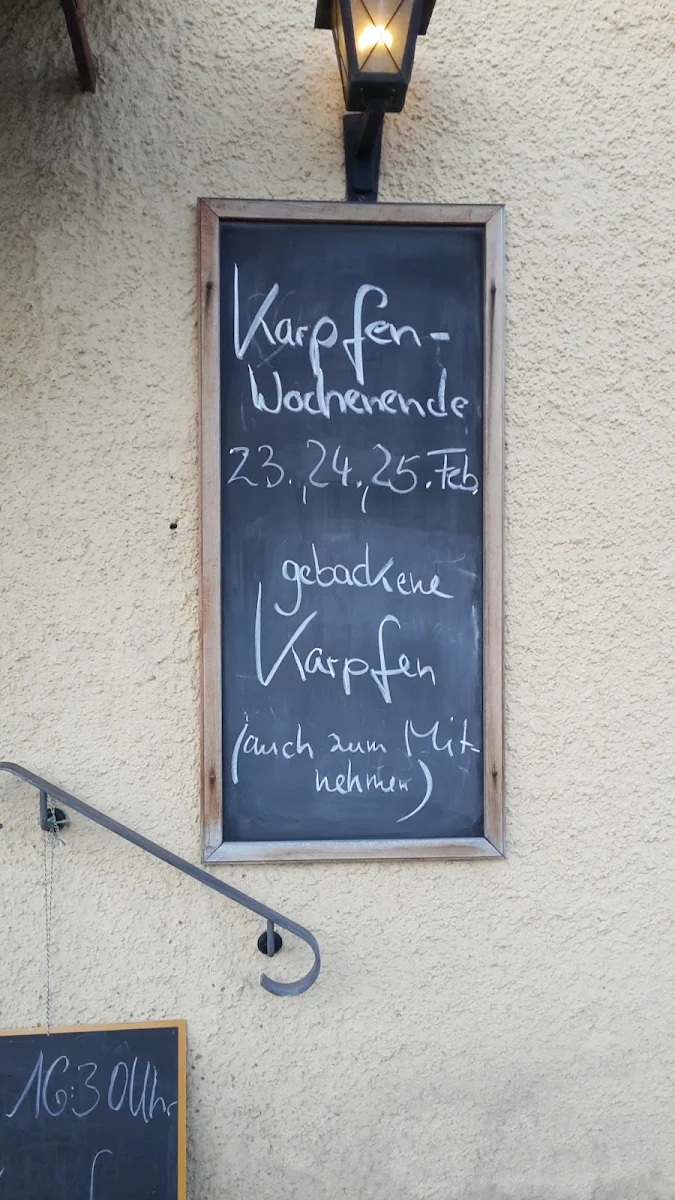 Karpfen-
Wochenende
23.,24.,25.Feb.
gebackene
Karpfen
(auch zum Mit-
nehmen)
16:30Uhr